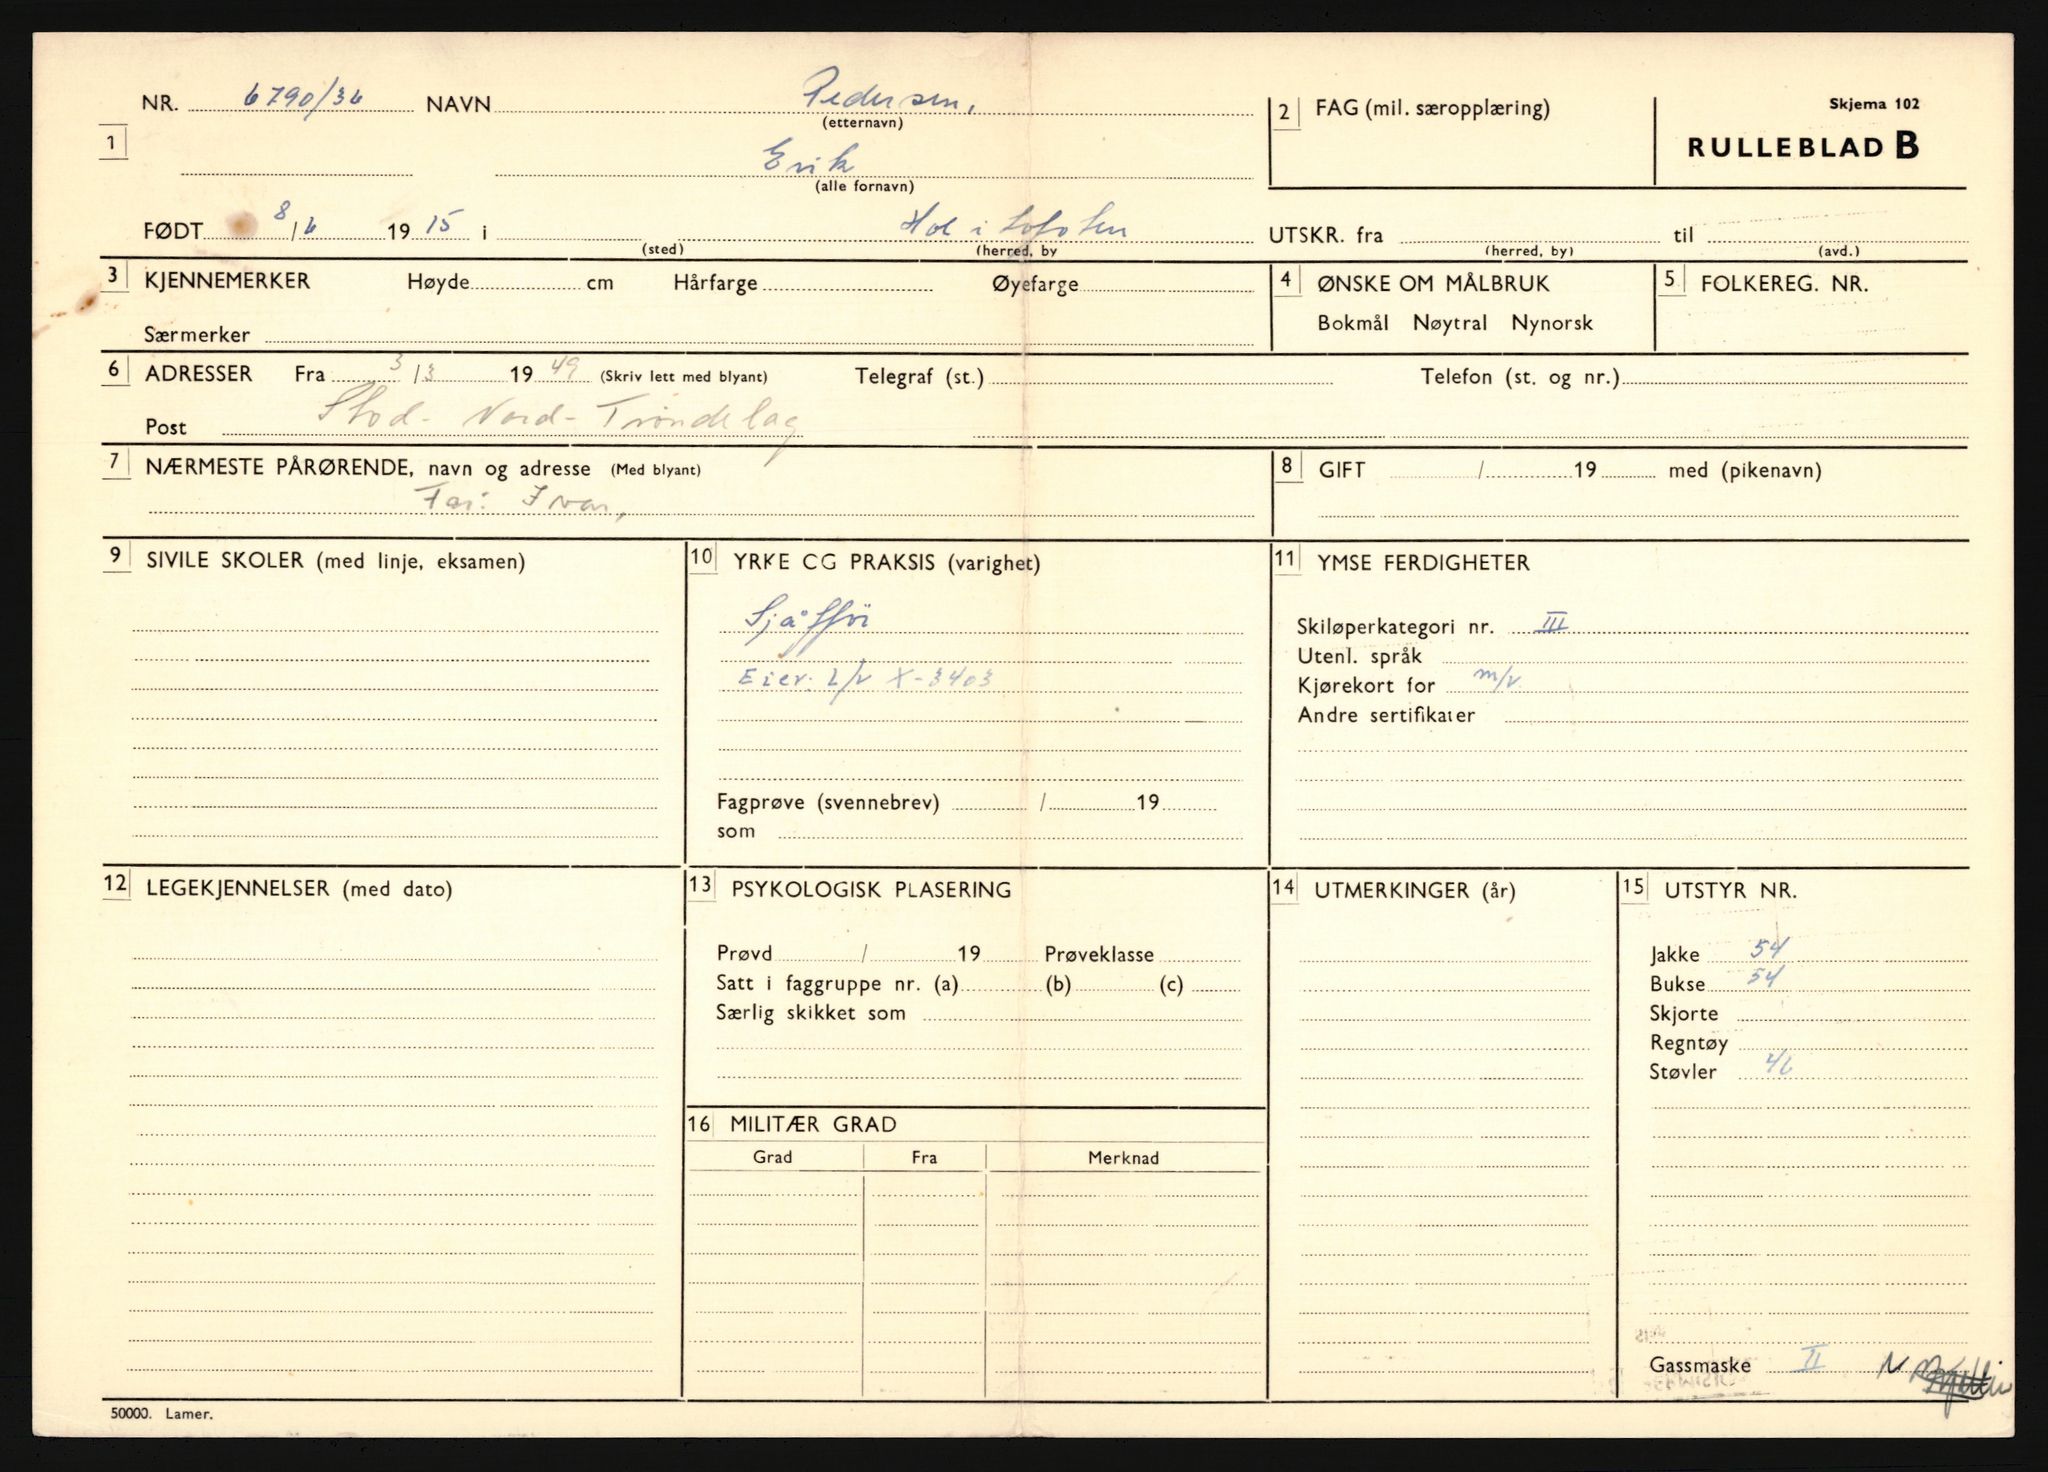 NR. 6790/36 NAVN Pedersen,
(etternavn)
1
Erik
(alle fornavn)
FØDT 8/6 1915 i Hol i Lofoten
(sted) (herred, by
2 FAG (mil. særopplæring)
Skjema 102
RULLEBLAD B
UTSKR. fra til
(herred, by) (avd.)
3 KJENNEMERKER Høyde cm Hårfarge Øyefarge
Særmerker
4 ØNSKE OM MÅLBRUK
Bokmål Nøytral Nynorsk
5 FOLKEREG. NR.
6 ADRESSER Fra 3/3 1949 (Skriv lett med blyant) Telegraf (st.) Telefon (st. og nr.)
Post Stod - Nord-Trøndelag
7 NÆRMESTE PÅRØRENDE, navn og adresse (Med blyant)
Far: Ivar,
8 GIFT / 19 med (pikenavn)
9 SIVILE SKOLER (med linje, eksamen)
10 YRKE OG PRAKSIS (varighet)
Sjåffør
Eier L/v X-3403
Fagprøve (svennebrev) / 19
som
11 YMSE FERDIGHETER
Skiløperkategori nr. III
Utenl. språk
Kjørekort for m/v.
Andre sertifikater
12 LEGEKJENNELSER (med dato)
13 PSYKOLOGISK PLASERING
Prøvd / 19 Prøveklasse
Satt i faggruppe nr. (a) (b) (c)
Særlig skikket som
14 UTMERKINGER (år)
15 UTSTYR NR.
Jakke 54
Bukse 54
Skjorte
Regntøy
Støvler 46
Gassmaske II N
16 MILITÆR GRAD
Grad Fra Merknad
50000. Lamer.